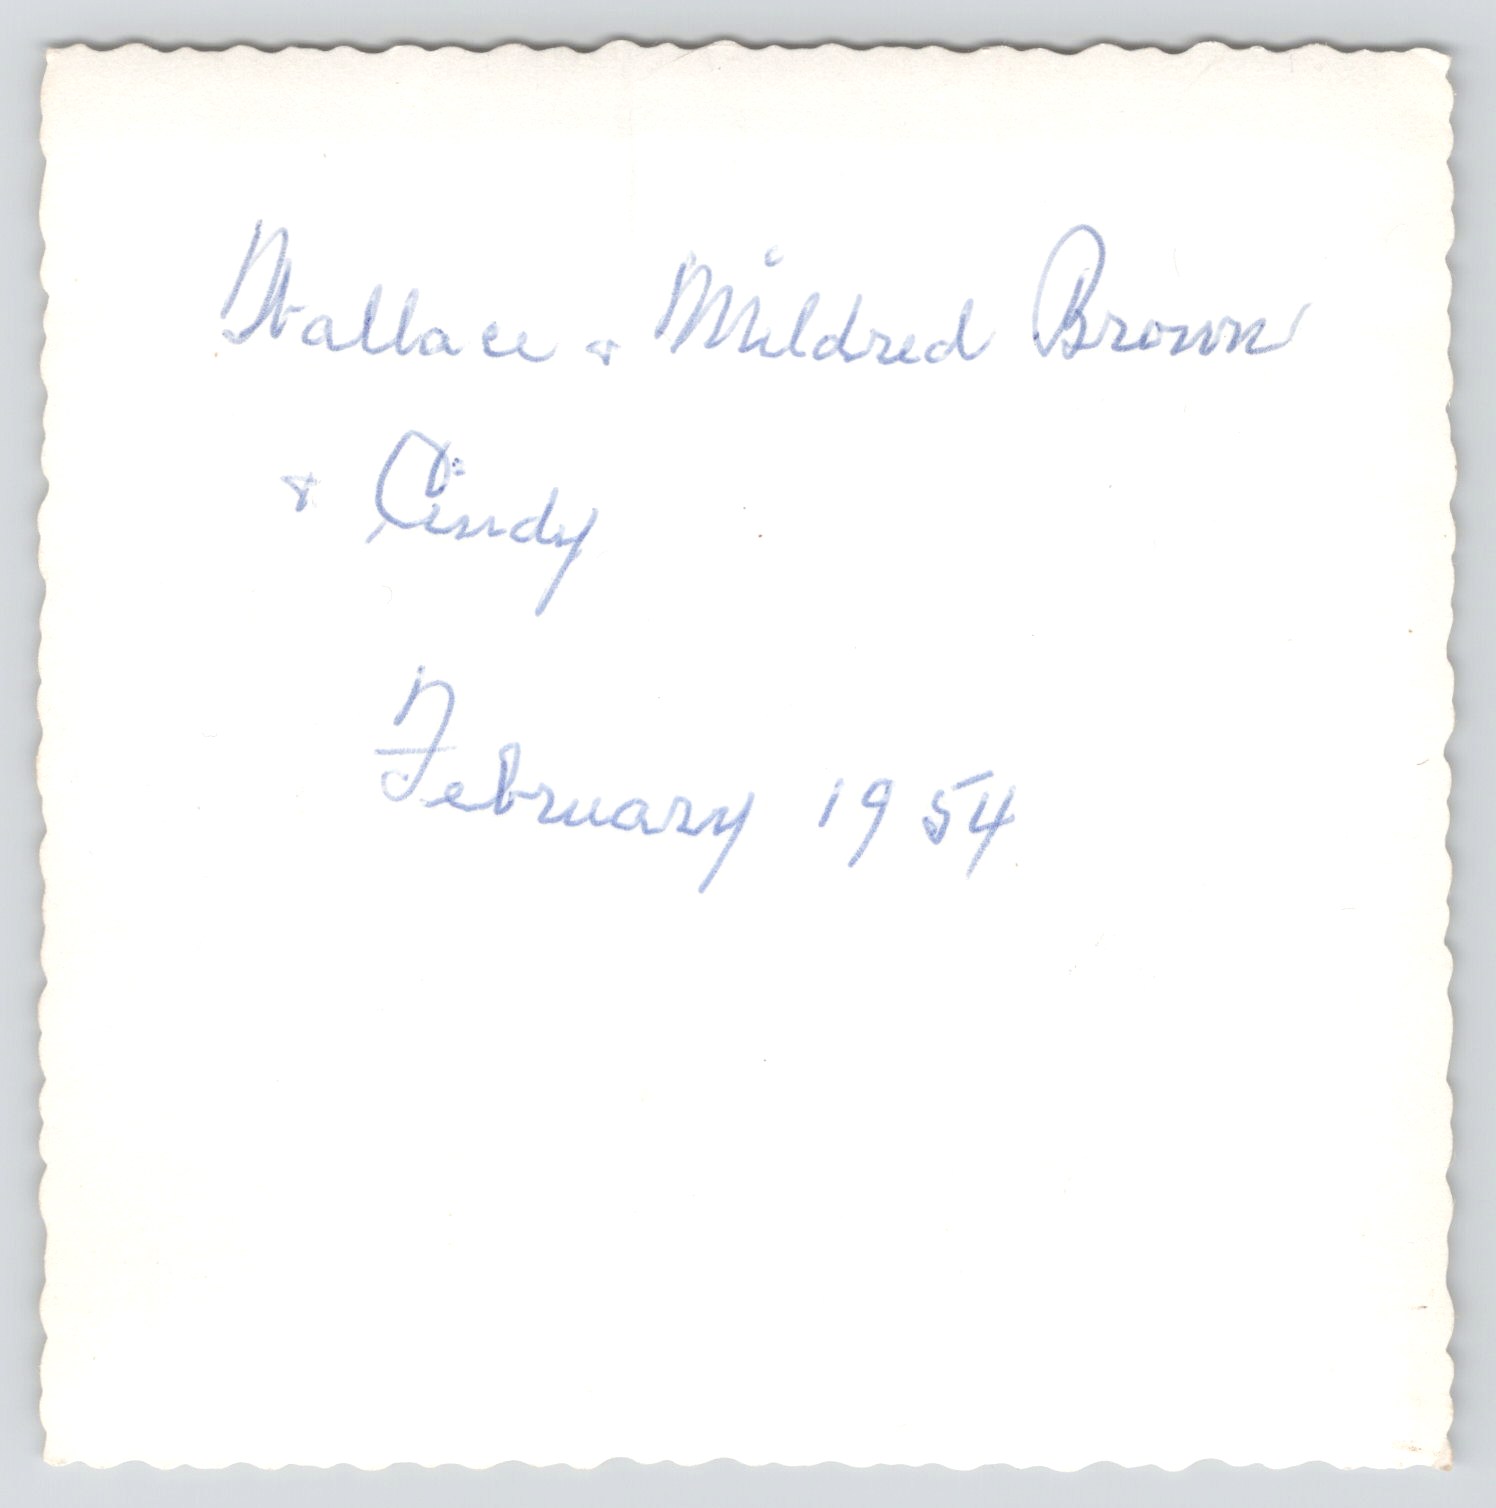 Wallace & Mildred Brown
& Cindy
February 1954